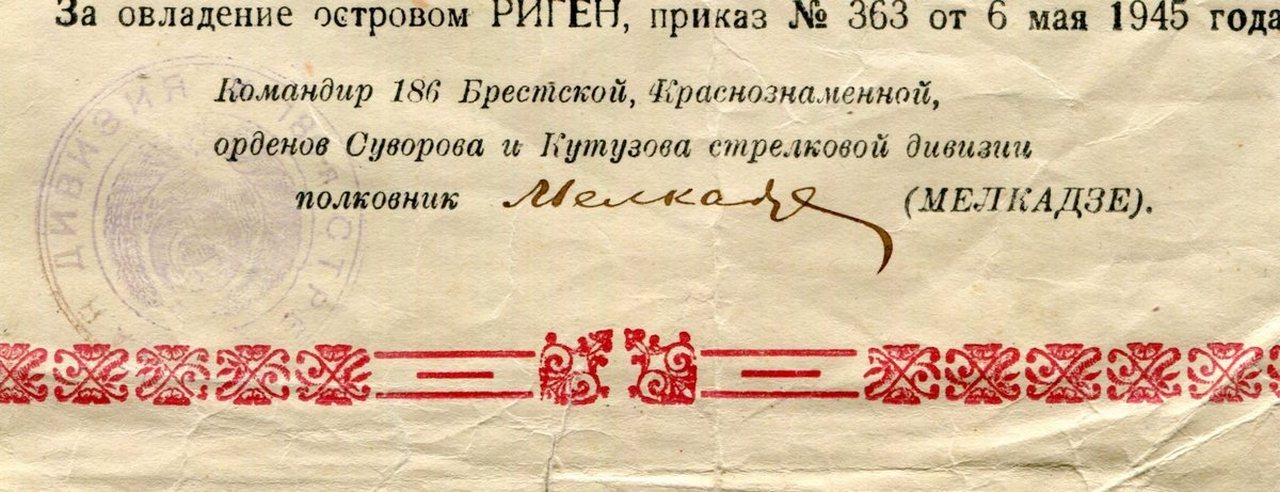 За овладение островом РИГЕН, приказ № 363 от 6 мая 1945 года
Командир 186 Брестской, Краснознаменной,
орденов Суворова и Кутузова стрелковой дивизии
полковник Мелкадзе (МЕЛКАДЗЕ).
ДИВИЗИЯ